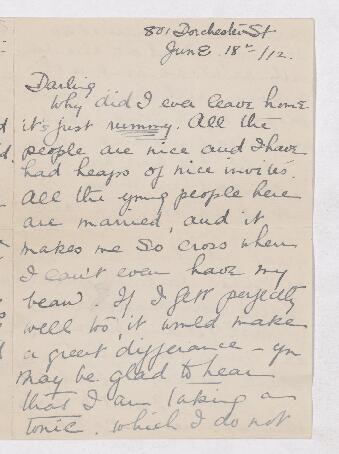 801 Dorchester St
June 18th/12.
Darling
Why did I ever leave home
it's just rummy. All the
people are nice and I have
had heaps of nice invites.
All the young people here
are married, and it
makes me so cross when
I can't even have my
beau. If I felt perfectly
well too, it would make
a great difference - you
may be glad to hear
that I am taking a
tonic. which I do not